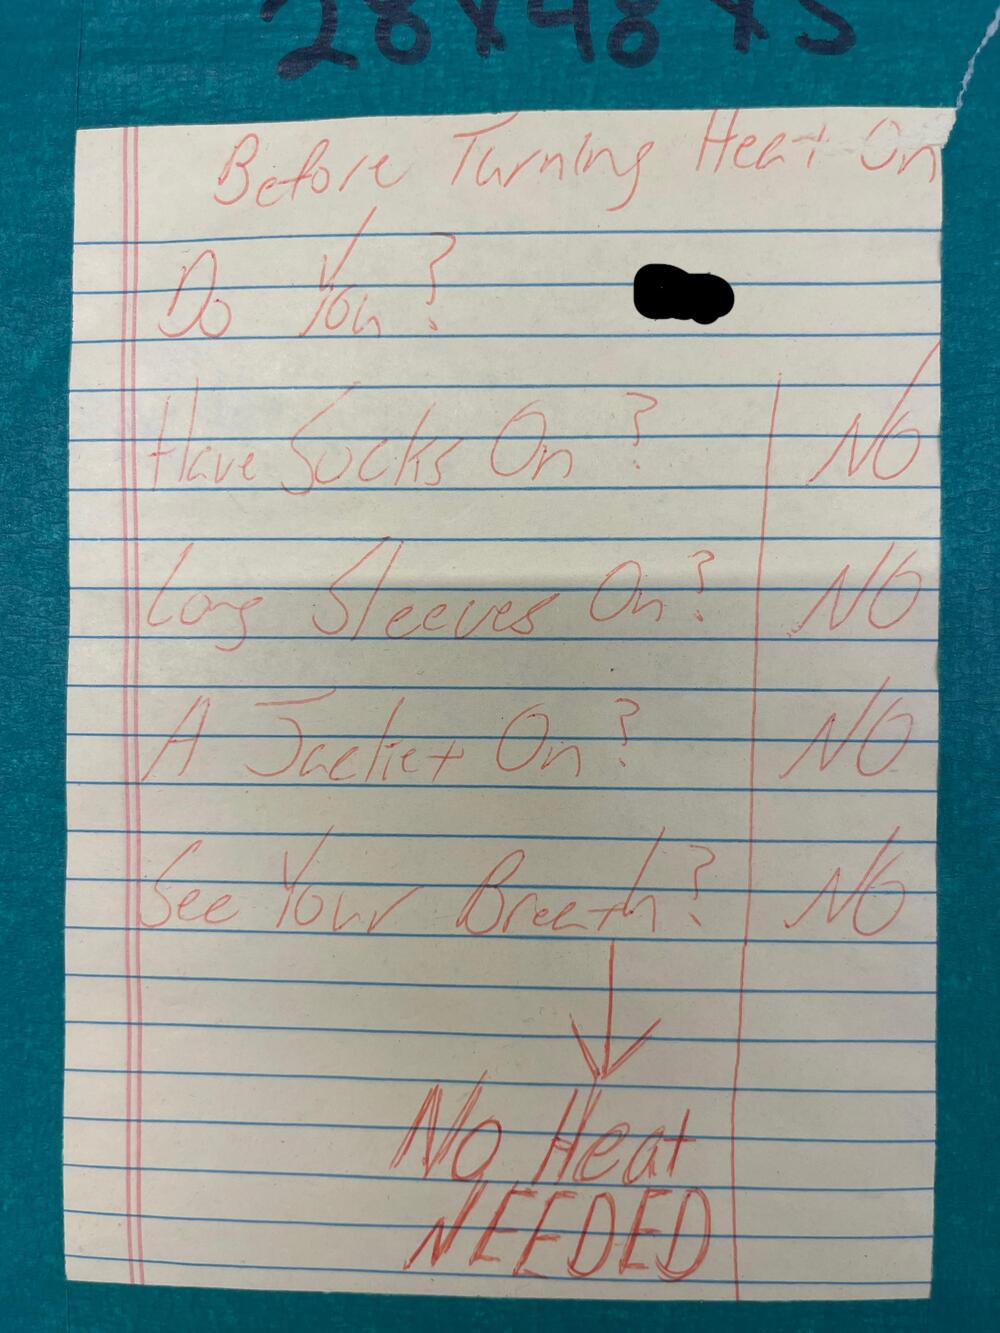 28x48x5
Before Turning Heat On
Do You?
Have Socks On? NO
Long Sleeves On? NO
A Jacket On? NO
See Your Breath? NO
No Heat
NEEDED